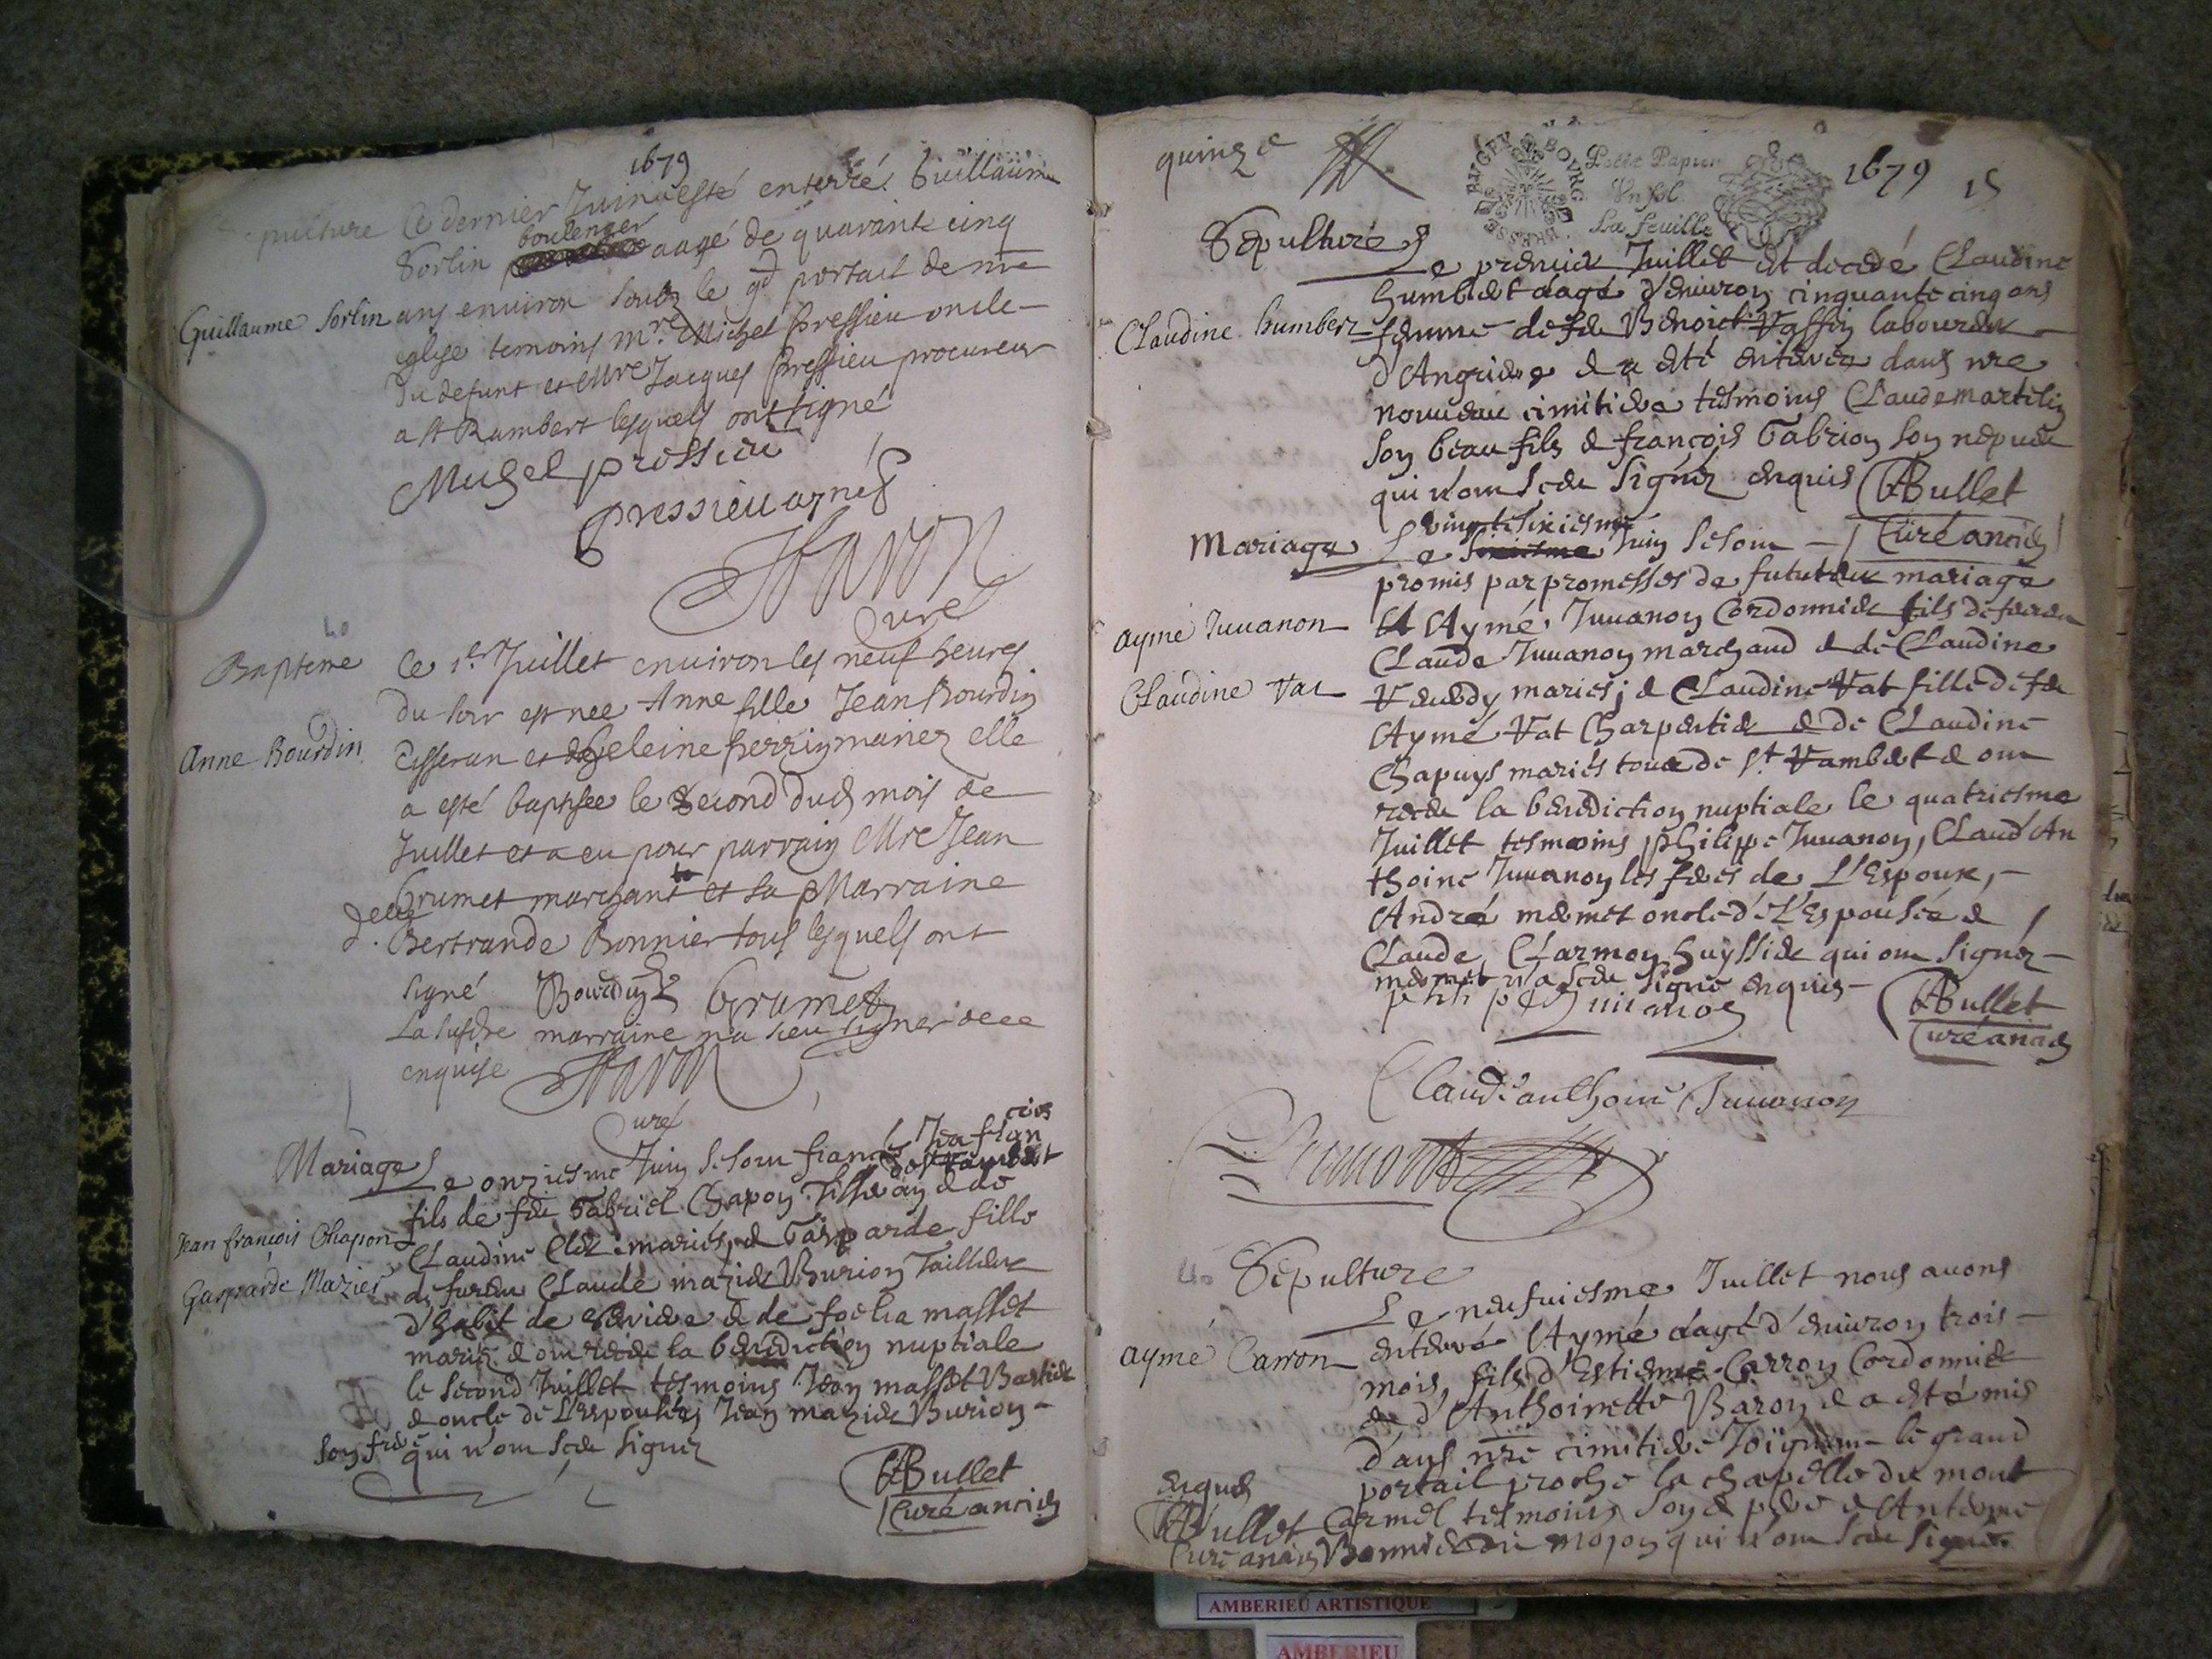 1679
pulture Ce dernier Juin a esté enterré Guillaume
Sorlin boulenger aagé de quarante cinq
Guillaume Sorlin ans environ soubz le gd portail de nre
eglise temoins mre Michel Pressieu oncle
du defunt et Mre Jacques Pressieu procureur
a St Rambert lesquels ont signé
Michel pressieu
Pressieu
Curé
Bapteme Ce 1er Juillet enuiron les neuf heures
du soir est nee Anne fille Jean Bourdin
Anne Bourdin Tisseran et de heleine perrin mariez elle
a esté baptisee le second dud mois de
Juillet et a eu pour parrain Mre Jean
Grumet marchant et sa Marraine
Bertrande Bonnier tous lesquels ont
signé Bourdin Grumet
La susdre marraine n'a sceu signer
enquise
Curé
Mariage Le onziesme Juin se sont fiancés Jea fran
cois
fils de feu Gabriel Chapon Tisseran & de
Jean françois Chapon Claudine mariés, & Gasparde fille
Gasparde Mazier de feu Claude mazier Burion Tailleur
d'habit de & de masset
mariés & ont receu la benediction nuptiale
le second Juillet tesmoins Jean masset
& oncle de L'Espousée, Jean mazier Burion
son frere qui n'ont sceu signer
Bullet
Curé ancien
quinze
BUGEY BOURG BRESSE
Petit Papier
Vn sol
La feuille
1679 15
Sepulture Le premier Juillet est decedé Claudine
humbert aagé d'enuiron cinquante cinq ans
Claudine humbert femme de feu Benoict Vassin laboureur
d' & a eté enterrée dans nre
nouueau cimitiere tesmoins Claude martelin
son beau fils & françois Gabrion son nepueu
qui n'ont sceu signér enquis Bullet
Curé ancien
vingtesixiesme
Mariage Le Juin se sont
promis par promesses de futur mariage
ayme Juuanon Aymé Juuanon Cordonnier fils de
Claude Juuanon marchand & de Claudine
Claudine Vat mariés; & Claudine Vat fille de feu
Aymé Vat Charpentier & de Claudine
Chapuys mariés tous de St Rambert & ont
receu la benediction nuptiale le quatriesme
Juillet tesmoins philippe Juuanon, Claud'An
thoine Juuanon les freres de L'Espoux,
André memet oncle de L'Espousée &
Claude Clarmon huyssier qui ont signér
memet n'a sceu signé enquis
Juuanon
Bullet
Curé ancien
Claud'anthoine Juuanon
Sepulture
Le neufuiesme Juillet nous auons
ayme Carron enterré Aymé aagé d'enuiron trois
mois, fils d'Estienne Carron Cordonnier
& d'Anthoinette Baron & a eté mis
dans nre cimitiere Joignant le grand
portail proche la chapelle du mont
Carmel tesmoins son pere & Antesme
Bonnier qui n'ont sceu signer
enquis
Bullet
Curé ancien
AMBERIEU ARTISTIQUE
AMBERIEU